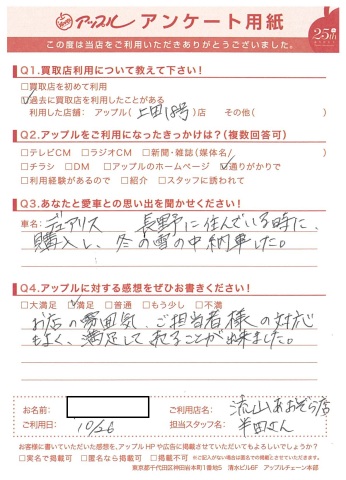 アップル アンケート用紙
25th
この度は当店をご利用いただきありがとうございました。
Q1.買取店利用について教えて下さい!
□買取を初めて利用
☑過去に買取店を利用したことがある
利用した店舗: アップル( 上田18号 )店 その他( )
Q2.アップルをご利用になったきっかけは?(複数回答可)
□テレビCM □ラジオCM □新聞・雑誌(媒体名/ )
□チラシ □DM □アップルのホームページ ☑通りがかりで
□利用経験があるので □紹介 □スタッフに誘われて
Q3.あなたと愛車との思い出を聞かせてください!
車名: デュアリス 長野に住んでいる時に、
購入し、冬の雪の中納車した。
Q4.アップルに対する感想をぜひお書きください!
□大満足 ☑満足 □普通 □もう少し □不満
お店の雰囲気、ご担当者様への対応
もよく、満足して売ることが出来ました。
お名前: ご利用店名: 流山おおぞら店
ご利用日: 10/26 担当スタッフ名: 半田さん
お客様に書いていただいた感想を、アップルHPや広告に掲載させていただいてもよろしいでしょうか?
□実名で掲載可 □匿名なら掲載可 □掲載不可 ※ご記入がない場合は匿名での掲載とさせていただきます。
東京都千代田区神田岩本町1番地5 清水ビル6F アップルチェーン本部